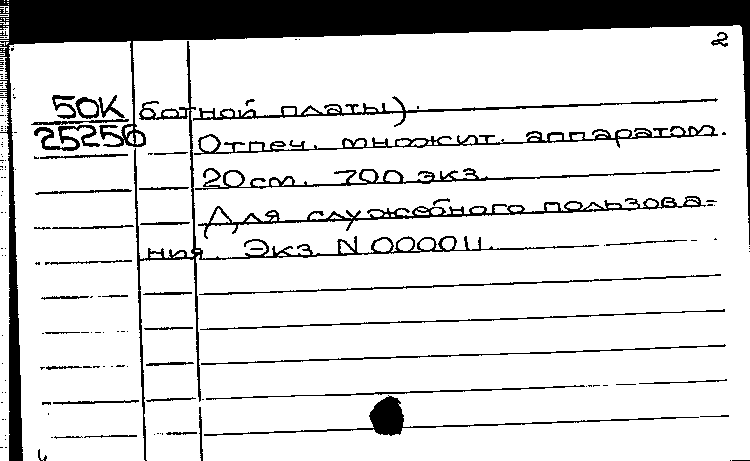 2
50К ботной платы).
25256 Отпеч. множит. аппаратом.
20 см. 700 экз.
Для служебного пользова=
ния. Экз. N 000011.